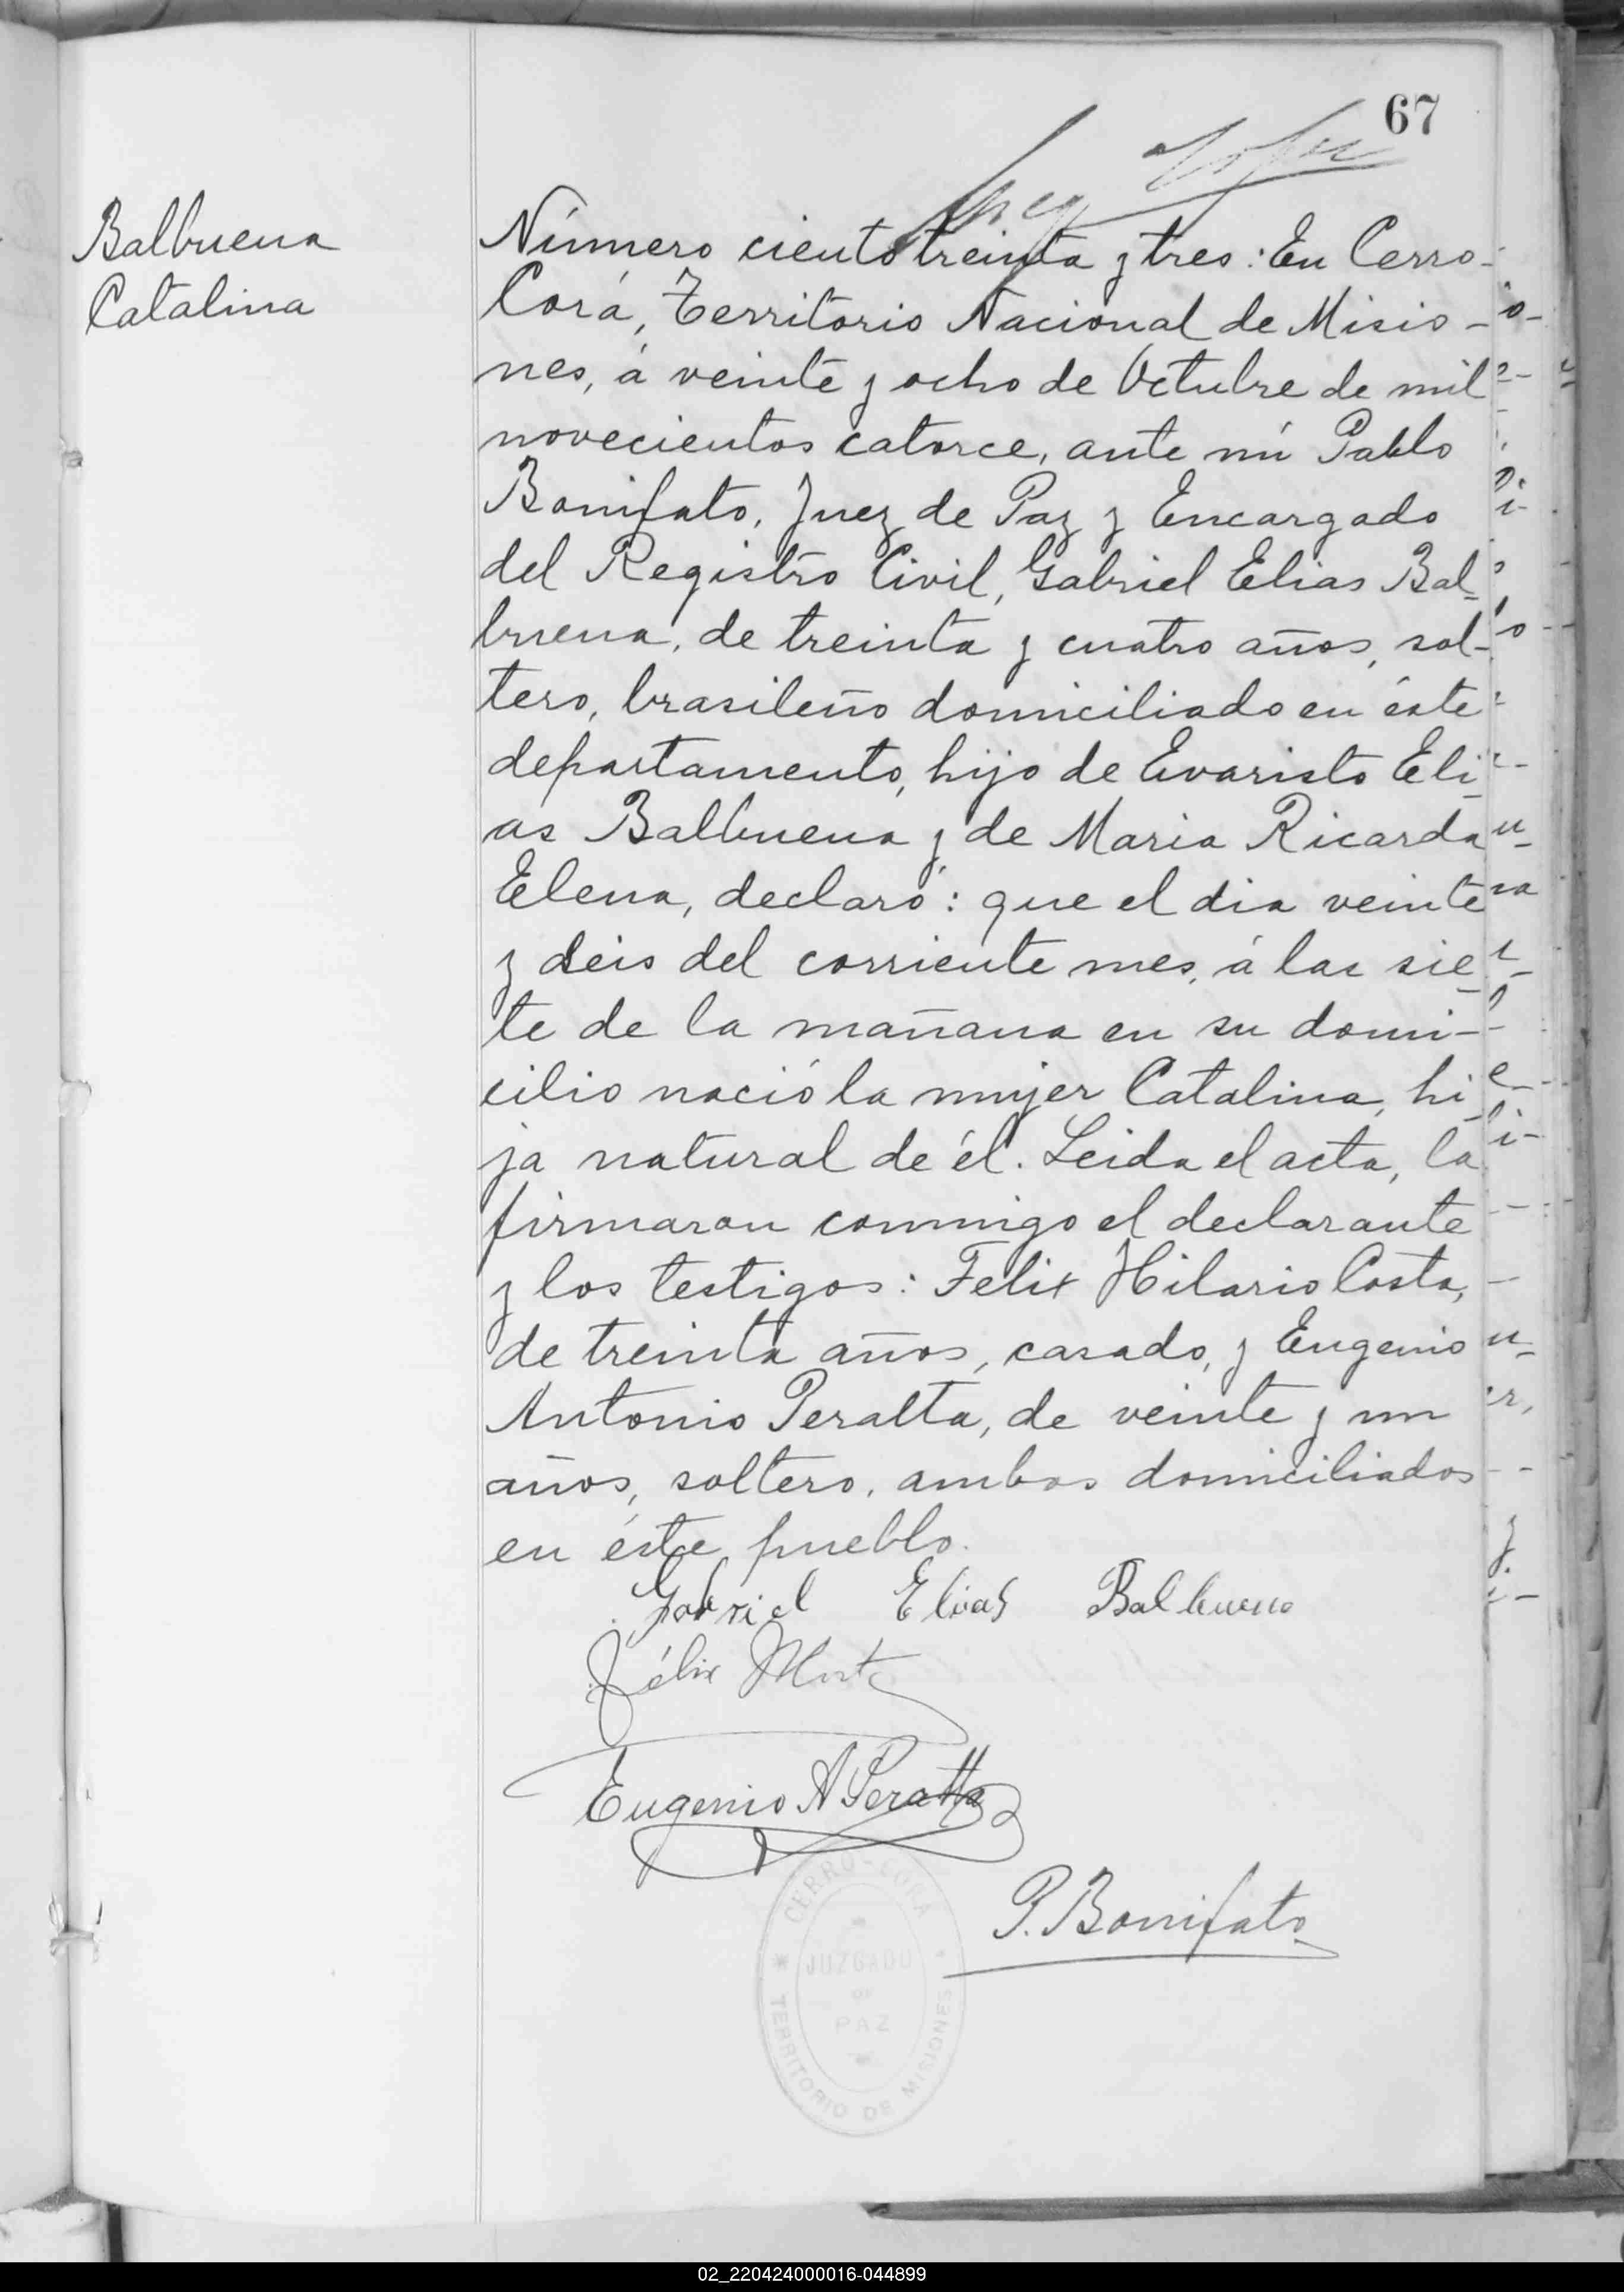 67
Balbuena
Catalina
Número ciento treinta y tres: En Cerro-
Corá, Territorio Nacional de Misio-
nes, á veinte y ocho de Octubre de mil
novecientos catorce, ante mí Pablo
Bonifato, Juez de Paz y Encargado
del Registro Civil, Gabriel Elias Bal-
buena, de treinta y cuatro años, sol-
tero, brasileño domiciliado en éste
departamento, hijo de Evaristo Eli-
as Balbuena y de Maria Ricarda
Elena, declaró: que el dia veinte
y seis del corriente mes, á las sie-
te de la mañana en su domi-
cilio nació la mujer Catalina, hi-
ja natural de él. Leida el acta, la
firmaron conmigo el declarante
y los testigos: Felix Hilario Costa,
de treinta años, casado, y Eugenio
Antonio Peralta, de veinte y un
años, soltero, ambos domiciliados
en éste pueblo.
Gabriel Elias Balbuena
Félix
Eugenio A Peralta
P. Bonifato
CERRO-CORA
JUZGADO
DE
PAZ
TERRITORIO DE MISIONES
02_220424000016-044899